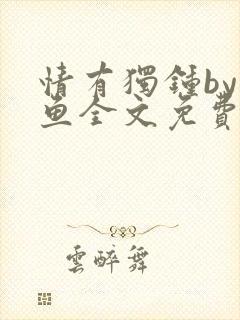 情有獨鍾by
魚全文免費
雲醉舞